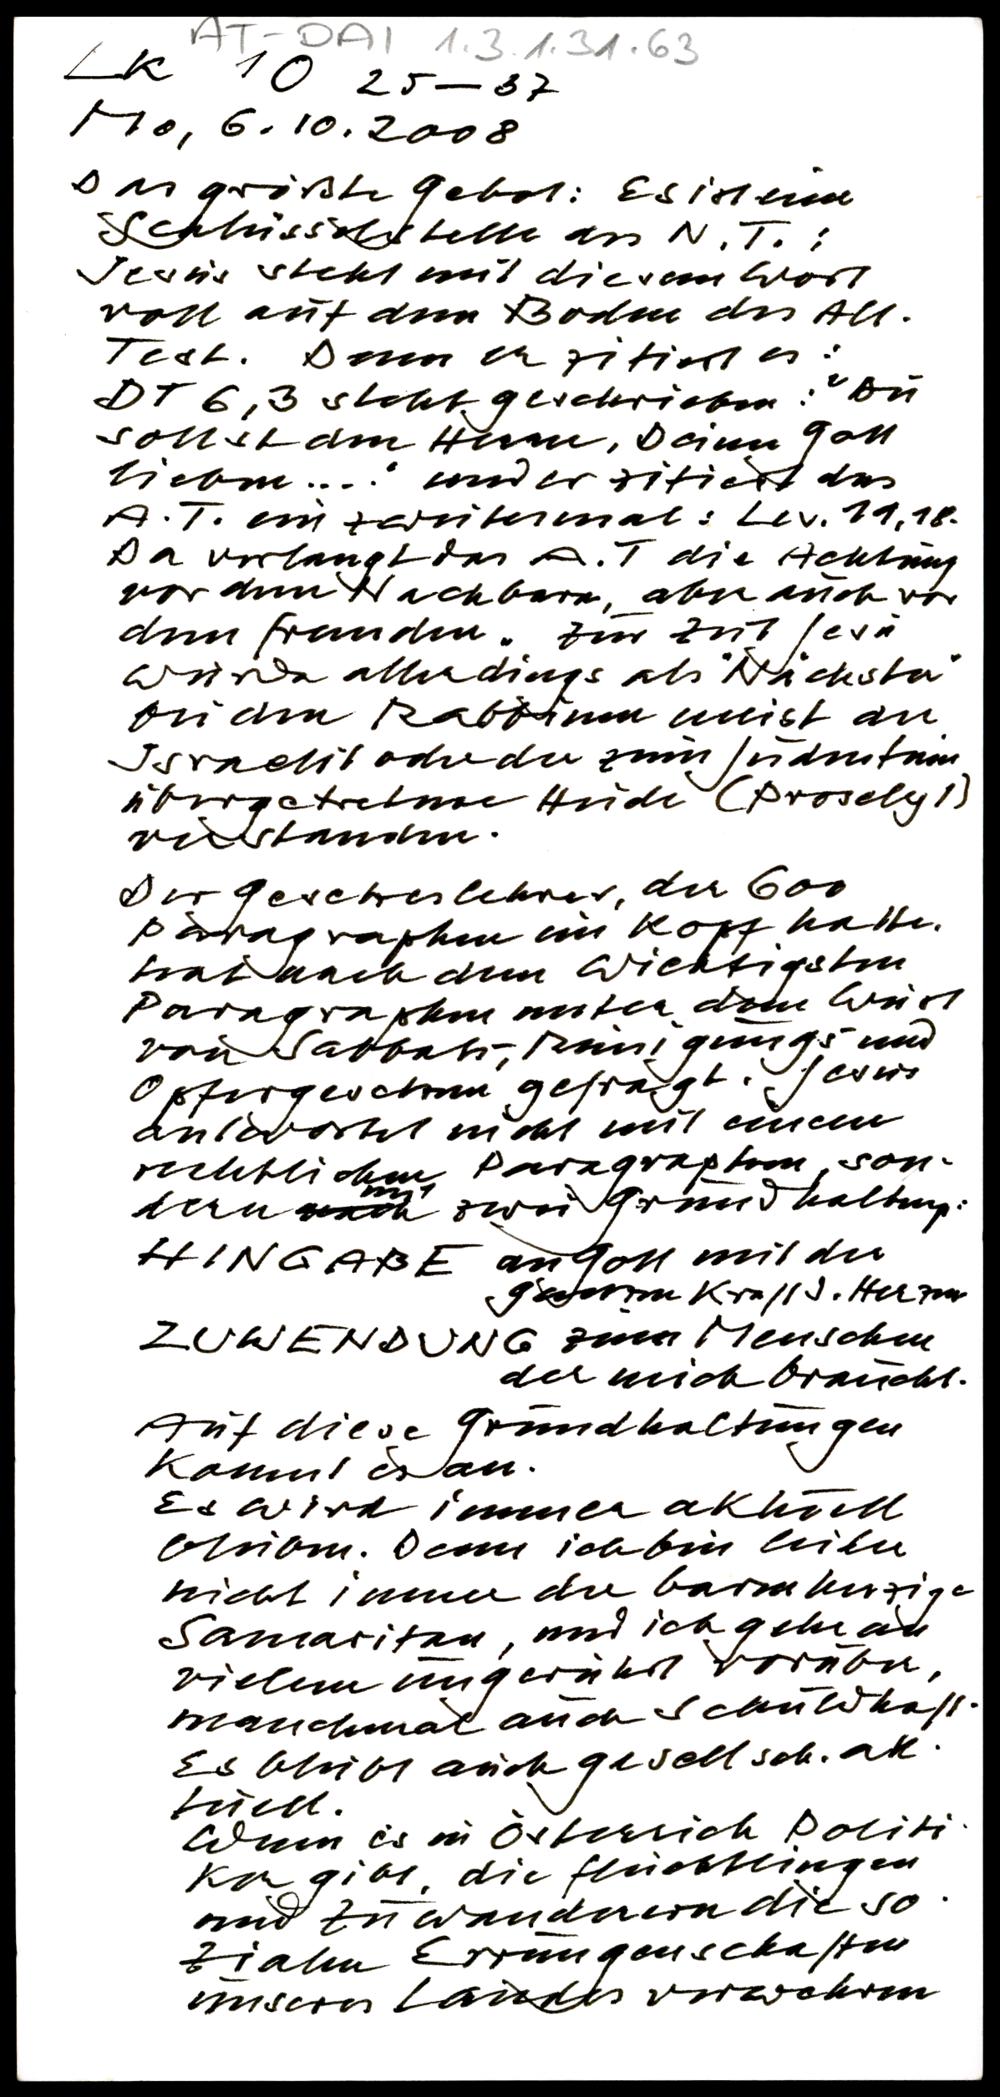 AT-DAI 1.3.1.31.63
Lk 10 25-37
Mo, 6.10.2008
Das größte Gebot: Es ist eine
Schlüsselstelle des N.T.:
Jesus steht mit diesem Wort
voll auf dem Boden des Alt.
Test. Denn er zitiert es:
DT 6,3 steht geschrieben: "Du
sollst den Herrn, Deinen Gott
lieben..." und er zitiert das
A.T. ein zweitesmal: Lev. 19,18.
Da verlangt das A.T die Achtung
vor dem Nachbarn, aber auch vor
dem Fremden. Zur Zeit Jesu
wurde allerdings als "Nächster"
bei den Rabbinen meist der
Israelit oder der zum Judentum
übergetretene Heide (Proselyt)
verstanden.
Der Gesetzeslehrer, der 600
Paragraphen im Kopf hatte.
hat nach dem Wichtigsten
Paragraphen unter dem Wust
von Sabbats-, Reinigungs- und
Opfergesetzen gefragt. Jesus
antwortet nicht mit einem
rechtlichen Paragraphen, son-
dern mit zwei Grundhaltung.:
HINGABE an Gott mit der
ganzen Kraft d. Herzens
ZUWENDUNG zum Menschen
der mich braucht.
Auf diese Grundhaltungen
kommt es an.
Es wird immer aktuell
bleiben. Denn ich bin leider
nicht immer der barmherzige
Samaritan, und ich gehe an
vielem ungerührt vorüber,
manchmal auch schuldhaft.
Es bleibt auch gesellsch. ak-
tuell.
Wenn es in Österreich Politi-
ker gibt, die Flüchtlingen
und Zuwanderern die so-
zialen Errungenschaften
unseres Landes verwehren